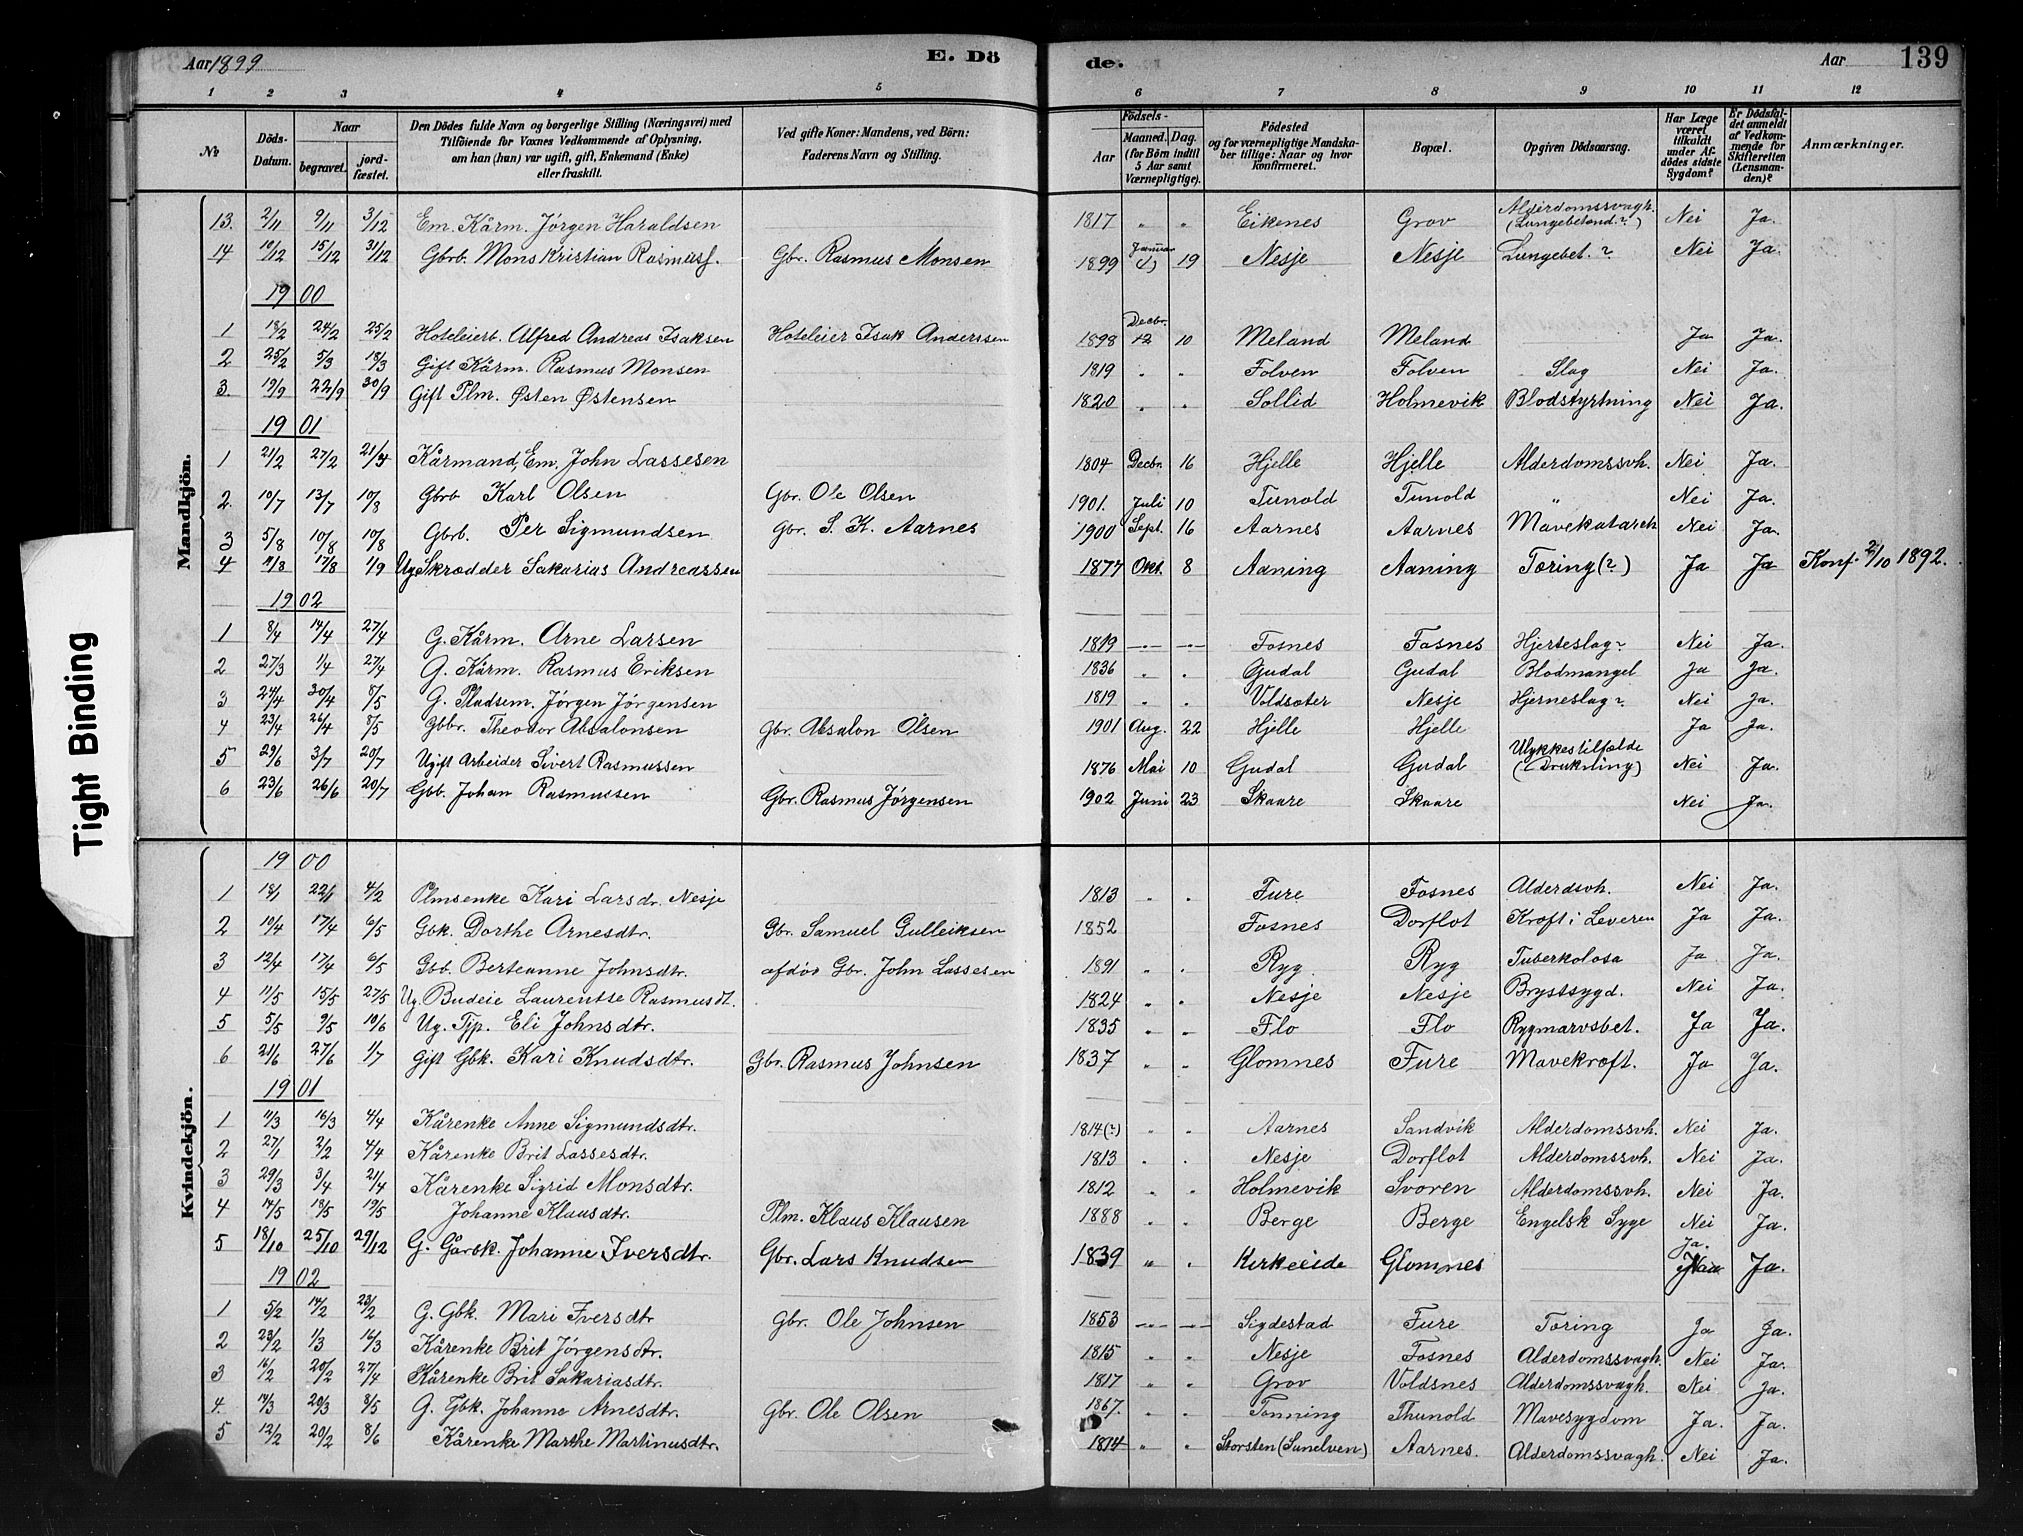 Aar 1899 E. Dö de. Aar 139
1 2 3 4 5 6 7 8 9 10 11 12
No. Döds-Datum. Naar begravet. jord-fæstet. Den Dödes fulde Navn og borgerlige Stilling (Næringsvei) med Tilföiende for Voxnes Vedkommende af Oplysning, om han (hun) var ugift, gift, Enkemand (Enke) eller fraskilt. Ved gifte Koner: Mandens, ved Börn: Faderens Navn og Stilling. Födsels- Aar Maaned. Dag. (for Börn indtil 5 Aar samt Værnepligtige). Födested og for værnepligtige Mandskaber tillige: Naar og hvor konfirmeret. Bopæl. Opgiven Dödsaarsag. Har Læge været tilkaldt under Afdödes sidste Sygdom? Er Dödsfaldet anmeldt af Vedkommende for Skifteretten (Lensmanden)? Anmærkninger.
Mandkjön.
13. 2/11 9/11 3/12 Em. Kårm. Jörgen Haraldsen 1817 " " Eikenes Grov Alderdomssvagh. (Lungebetænd.?) Nei Ja.
14 10/12 15/12 31/12 Gbrb. Mons Kristian Rasmusf. Gbr. Rasmus Monsen 1899 Januar (1) 19 Nesje Nesje Lungebet.? Nei Ja.
1900
1 18/2 24/2 25/2 Hoteleierb. Alfred Andreas Isaksen Hoteleier Isak Anderssen 1898 Decbr. 12 10 Meland Meland Ja Ja.
2 25/2 5/3 18/3 Gift Kårm. Rasmus Monsen 1819 " " Folven Folven Slag Nei Ja.
3. 19/9 22/9 30/9 Gift Plm. Østen Østensen 1820 " " Sollid Holmevik Blodstyrtning Nei Ja.
1901
1 21/2 27/2 21/4 Kårmand, Em. John Lassesen 1804 Decbr. 16 Hjelle Hjelle Alderdomssvh. Nei Ja.
2. 10/7 13/7 10/8 Gbrb Karl Olsen Gbr. Ole Olsen 1901. Juli 10 Tunold Tunold " Nei Ja.
3 5/8 10/8 10/8 Gbrb. Per Sigmundsen Gbr. S. K. Aarnes 1900 Sept. 16 Aarnes Aarnes Mavekatarrh Nei Ja.
4 11/8 17/8 1/9 Ug. Skrædder Sakarias Andreassen 1877 Okt. 8 Aaning Aaning Tæring (?) Ja Ja Konf. 2/10 1892.
1902
1 8/4 14/4 27/4 G. Kårm. Arne Larsen 1819 — — Fosnes Fosnes Hjerteslag? Nei Ja.
2 27/3 1/4 27/4 G. Kårm. Rasmus Eriksen 1836 " " Gudal Gudal Blodmangel Ja Ja.
3 24/4 30/4 8/5 G. Pladsem. Jörgen Jörgensen 1819 " " Voldsæter Nesje Hjerneslag? Nei Ja.
4 23/4 26/4 8/5 Gbbr. Theodor Absalonsen Gbr. Absalon Olsen 1901 Aug. 22 Hjelle Hjelle Ja Ja.
5 29/6 3/7 20/7 Ugift Arbeider Sivert Rasmussen 1876 Mai 10 Gudal Gudal Ulykkestilfælde (Drukning) Nei Ja.
6 23/6 26/6 20/7 Gbb. Johan Rasmussen Gbr. Rasmus Jörgensen 1902 Juni 23 Skaare Skaare Nei Ja.
Kvindekjön.
1900
1 18/1 22/1 4/2 Plmsenke Kari Larsdr. Nesje 1813 " " Fure Fosnes Alderdsvh. Nei Ja.
2 10/4 17/4 6/5 Gbk. Dorthe Arnesdtr. Gbr. Samuel Gulleiksen 1852 Fosnes Dorflot Kræft i Leveren Ja Ja.
3 12/4 17/4 6/5 Gbb. Berteanne Johnsdtr. afdöd Gbr. John Lassesen 1891 " " Ryg Ryg Tuberkolosa Ja Ja.
4 11/5 15/5 27/5 Ug. Budeie Laurentse Rasmusdt. 1824 " " Nesje Nesje Brystsygd. Nei Ja.
5 5/5 9/5 10/6 Ug. Tjp. Eli Johnsdtr. 1835 " " Flo Flo Rygmarvsbet. Ja Ja.
6 21/6 27/6 1/7 Gift Gbk. Kari Knudsdtr. Gbr. Rasmus Johnsen 1837 " " Glomnes Fure Mavekræft. Ja Ja.
1901
1 11/3 16/3 4/4 Kårenke Anne Sigmundsdtr. 1814(?) " " Aarnes Sandvik Alderdomssvh. Nei Ja.
2 27/1 2/2 4/4 Kårenke Brit Lassesdtr. 1813 " " Nesje Dorflot Alderdomssvh. Nei Ja.
3 29/3 3/4 21/4 Kårenke Sigrid Monsdtr. 1812 " " Holmevik Svoren Alderdomssvh. Nei Ja.
4 14/5 18/5 19/5 Johanne Klausdtr. Plm. Klaus Klausen 1888 " " Berge Berge Engelsk Syge Nei Ja.
5 18/10 25/10 29/12 G. Gårdk. Johanne Iversdtr. Gbr. Lars Knudsen 1839 " " Kirkeeide Glomnes Ja. Ja.
1902
1 5/2 14/2 23/2 G. Gbk. Mari Iversdtr Gbr. Ole Johnsen 1853 — — Sigdestad Fure Tæring Ja Ja.
2 23/2 1/3 16/3 Kårenke Brit Jörgensdtr. 1815 " " Nesje Fosnes Alderdomssvagh. Nei Ja.
3 16/2 20/2 27/4 Kårenke Brit Sakariasdtr. 1817 " " Grov Voldsnes Alderdomssvagh. Nei Ja.
4. 14/3 20/3 8/5 G. Gbk. Johanne Arnesdtr. Gbr. Ole Olsen 1867. " " Tonning Thunold Mavesygdom Ja. Ja.
5 12/2 20/2 8/6 Kårenke Marthe Martinusdtr. 1814 " " Storsten (Sunelven) Aarnes. Alderdomssvagh. Nei Ja.
Tight Binding